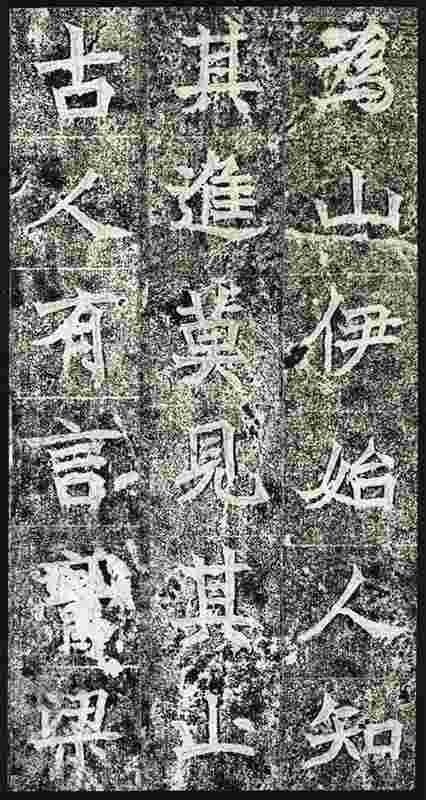 為山伊始人知
其進莫見其止
古人有言梁